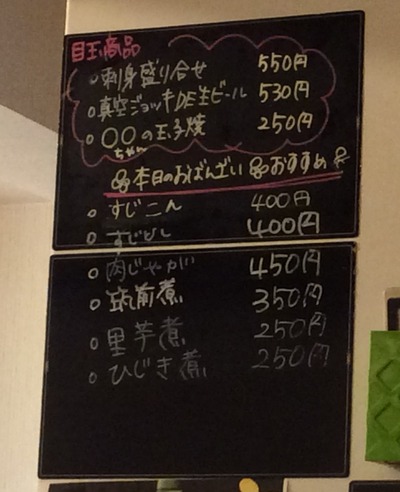 目玉商品
○刺身盛り合せ 550円
○真空ジョッキDE生ビール 530円
○〇〇の玉子焼 250円
ちゃん
本日のおばんざい おすすめ
○すじこん 400円
○すじ 400円
○肉じゃがい 450円
○筑前煮 350円
○里芋煮 250円
○ひじき煮 250円